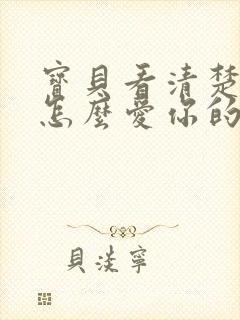 寶貝看清楚
怎麼愛你的
貝淡寧